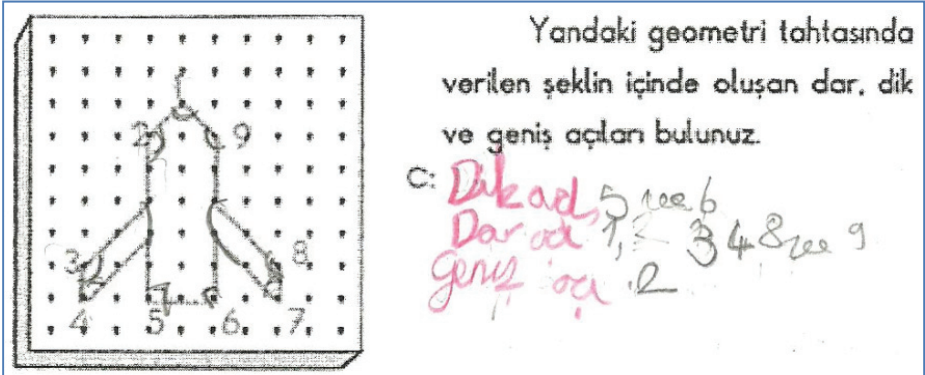 Yandaki geometri tahtasında
verilen şeklin içinde oluşan dar, dik
ve geniş açıları bulunuz.
C: Dik açı 5 ve 6
Dar açı 1, 3 4 8 ve 9
Geniş açı 2
1
2 9
3 8
4 5 6 7